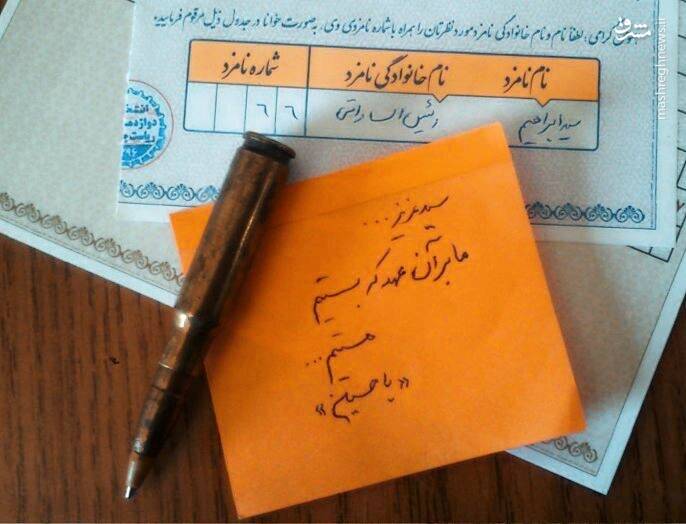 گرامی، لطفاً نام و نام خانوادگی نامزد مورد نظرتان را همراه با شماره نامزدی وی، به‌صورت خوانا در جدول ذیل مرقوم فرمایید.
نام نامزد نام خانوادگی نامزد شماره نامزد
سید ابراهیم رئیس الساداتی ۶ ۶
ریاست
سید عزیز...
ما بر آن عهد که بستیم
هستیم...
«یا حسین»
مشرق
mashreghnews.ir